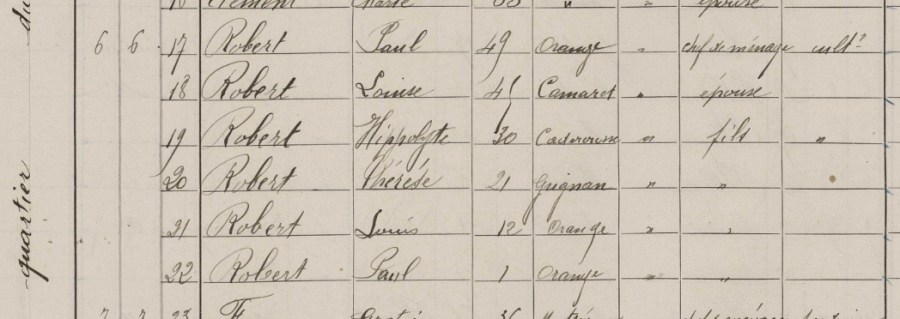 quartier du
Clément Marie " " épouse
6 6 17 Robert Paul 49 Orange " chef de ménage cult?
18 Robert Louise 45 Camaret " épouse
19 Robert Hippolyte 30 Caderousse " fils "
20 Robert Thérèse 21 Grignan " "
21 Robert Louis 12 Orange " "
22 Robert Paul 1 Orange " "
23